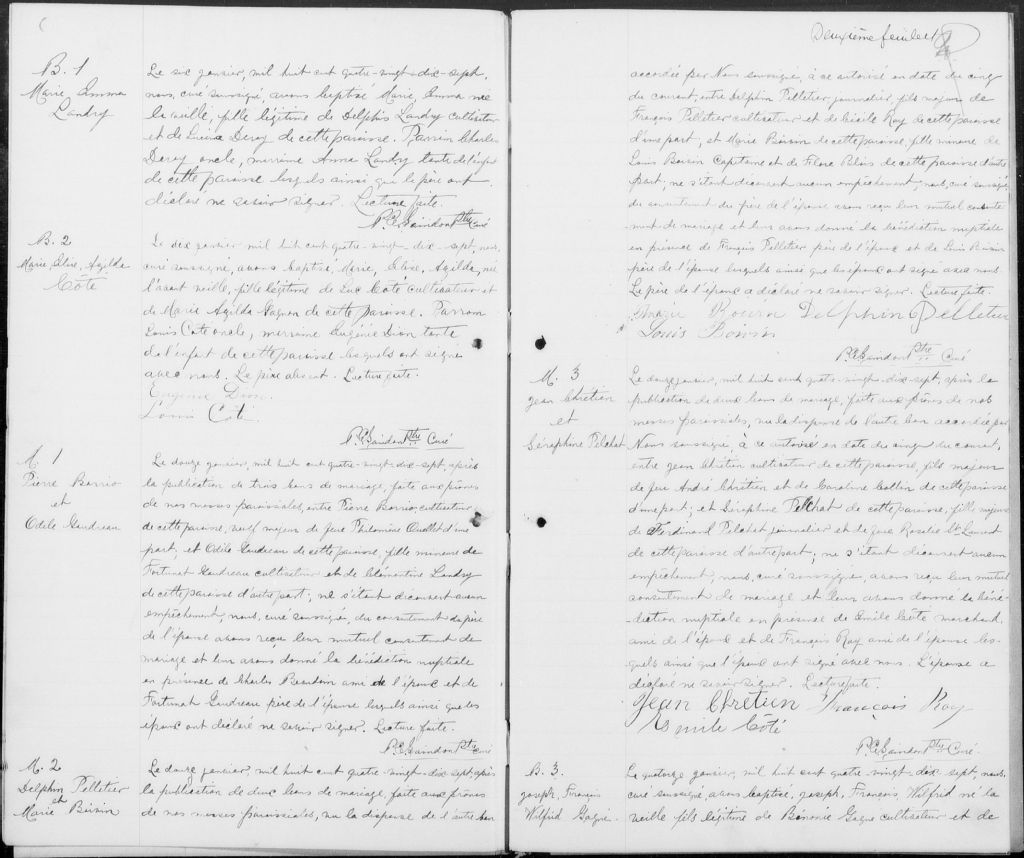 B. 1
Marie Emma
Landry
Le six janvier, mil huit cent quatre-vingt-dix-sept,
nous, curé soussigné, avons baptisé Marie, Emma née
la veille, fille légitime de Delphis Landry cultivateur
et de Luisina Deroy de cette paroisse. Parrain Charles
Deroy oncle, marraine Anna Landry tante de l'enfant
de cette paroisse lesquels ainsi que le père ont
déclaré ne savoir signer. Lecture faite.
Ptre Curé
B. 2
Marie, Elise, Azilda
Côté
Le dix janvier mil huit cent quatre-vingt-dix-sept, nous,
curé soussigné, avons baptisé Marie, Elise, Azilda, née
l'avant veille, fille légitime de Luc Coté cultivateur et
de Marie Azilda Gagnon de cette paroisse. Parrain
Louis Coté oncle, marraine Eugénie Dion tante
de l'enfant de cette paroisse lesquels ont signé
avec nous. Le père absent. Lecture faite.
Eugénie Dion.
Louis Coté
Ptre Curé
M. 1
Pierre Barrio
et
Odile Gaudreau
Le douze janvier, mil huit cent quatre-vingt-dix-sept, après
la publication de trois bans de mariage, faite aux prônes
de nos messes paroissiales, entre Pierre Barrio, cultivateur
de cette paroisse, veuf majeur de feue Philomène Ouellet d'une
part; et Odile Gaudreau de cette paroisse, fille mineure de
Fortunat Gaudreau cultivateur et de Clémentine Landry
de cette paroisse d'autre part; ne s'étant découvert aucun
empêchement, nous, curé soussigné, du consentement du père
de l'épouse avons reçu leur mutuel consentement de
mariage et leur avons donné la bénédiction nuptiale
en présence de Charles Beaudoin ami de l'époux et de
Fortunat Gaudreau père de l'épouse lesquels ainsi que les
époux ont déclaré ne savoir signer. Lecture faite.
Ptre curé
M. 2
Delphin Pelletier
et
Marie Boivin
Le douze janvier, mil huit cent quatre-vingt-dix-sept, après
la publication de deux bans de mariage, faite aux prônes
de nos messes paroissiales, vu la dispense de l'autre ban
Deuxième feuillet
accordée par Nous soussigné, à ce autorisé en date du cinq
du courant, entre Delphin Pelletier, journalier, fils majeur de
François Pelletier cultivateur et de Cécile Roy de cette paroisse
d'une part, et Marie Boivin de cette paroisse, fille mineure de
Louis Boivin Capitaine et de Flore Blais de cette paroisse d'autre
part; ne s'étant découvert aucun empêchement, nous, curé soussigné,
du consentement du père de l'épouse avons reçu leur mutuel consente
-ment de mariage et leur avons donné la bénédiction nuptiale
en présence de François Pelletier père de l'époux et de Louis Boivin
père de l'épouse lesquels ainsi que les époux ont signé avec nous.
Le père de l'époux a déclaré ne savoir signer. Lecture faite.
Delphin Pelletier
Louis Boivin
Ptre Curé
M. 3
Jean Chrétien
et
Séraphine Pelchat
Le douze janvier, mil huit cent quatre-vingt-dix-sept, après la
publication de deux bans de mariage, faite aux prônes de nos
messes paroissiales, vu la dispense de l'autre ban accordée par
Nous soussigné, à ce autorisé en date du cinq du courant,
entre Jean Chrétien cultivateur de cette paroisse, fils majeur
de feu André Chrétien et de Caroline Collin de cette paroisse
d'une part; et Séraphine Pelchat de cette paroisse, fille majeure
de Ferdinand Pelchat journalier et de feue Rosalie St. Laurent
de cette paroisse d'autre part, ne s'étant découvert aucun
empêchement, nous, curé soussigné, avons reçu leur mutuel
consentement de mariage et leur avons donné la béné-
-diction nuptiale en présence de Emile Côté marchand,
ami de l'époux et de François Roy ami de l'épouse les-
quels ainsi que l'époux ont signé avec nous. L'épouse a
déclaré ne savoir signer. Lecture faite.
Jean Chretien François Roy
Emile Côté
Ptre Curé.
B. 3.
Joseph, François
Wilfrid Gagné.
Le quatorze janvier, mil huit cent quatre-vingt-dix-sept, nous,
curé soussigné avons baptisé, Joseph, François, Wilfrid né la
veille fils légitime de Bénonie Gagné cultivateur et de